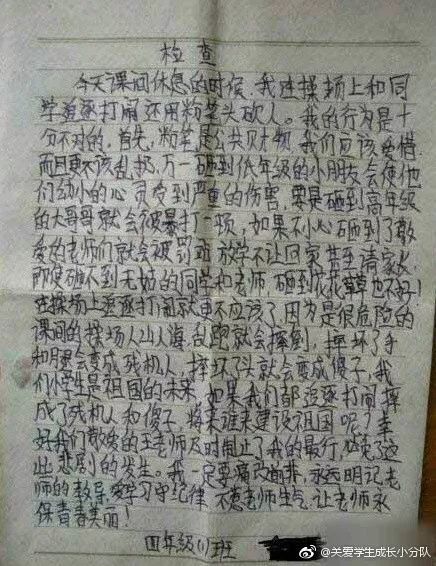 检查
今天课间休息的时候,我在操场上和同
学追逐打闹还用粉笔头砍人。我的行为是十
分不对的,首先,粉笔是公共财物,我们应该爱惜
而且更不该乱扔,万一砸到低年级的小朋友会使他
们幼小的心灵受到严重的伤害,要是砸到高年级
的大哥哥就会被暴打一顿,如果不小心砸到了敬
爱的老师们就会被罚站 放学不让回家 甚至请家长
即使砸不到无辜的同学和老师 砸到花花草草也不好!
在操场上追逐打闹就更不应该了,因为是很危险的
课间的操场人山人海,乱跑就会摔倒,摔坏了手
和腿会变成残机人,摔坏了头就会变成傻子,我
们小学生是祖国的未来,如果我们都追逐打闹 摔
成了残机人和傻子,将来谁来建设祖国呢?幸
好我们敬爱的王老师及时制止了我的暴行,避免了这
出悲剧的发生。我一定要痛改前非,永远明记老
师的教导,爱学习守纪律 不惹老师生气,让老师永
保青春美丽!
四年级(1)班
@关爱学生成长小分队